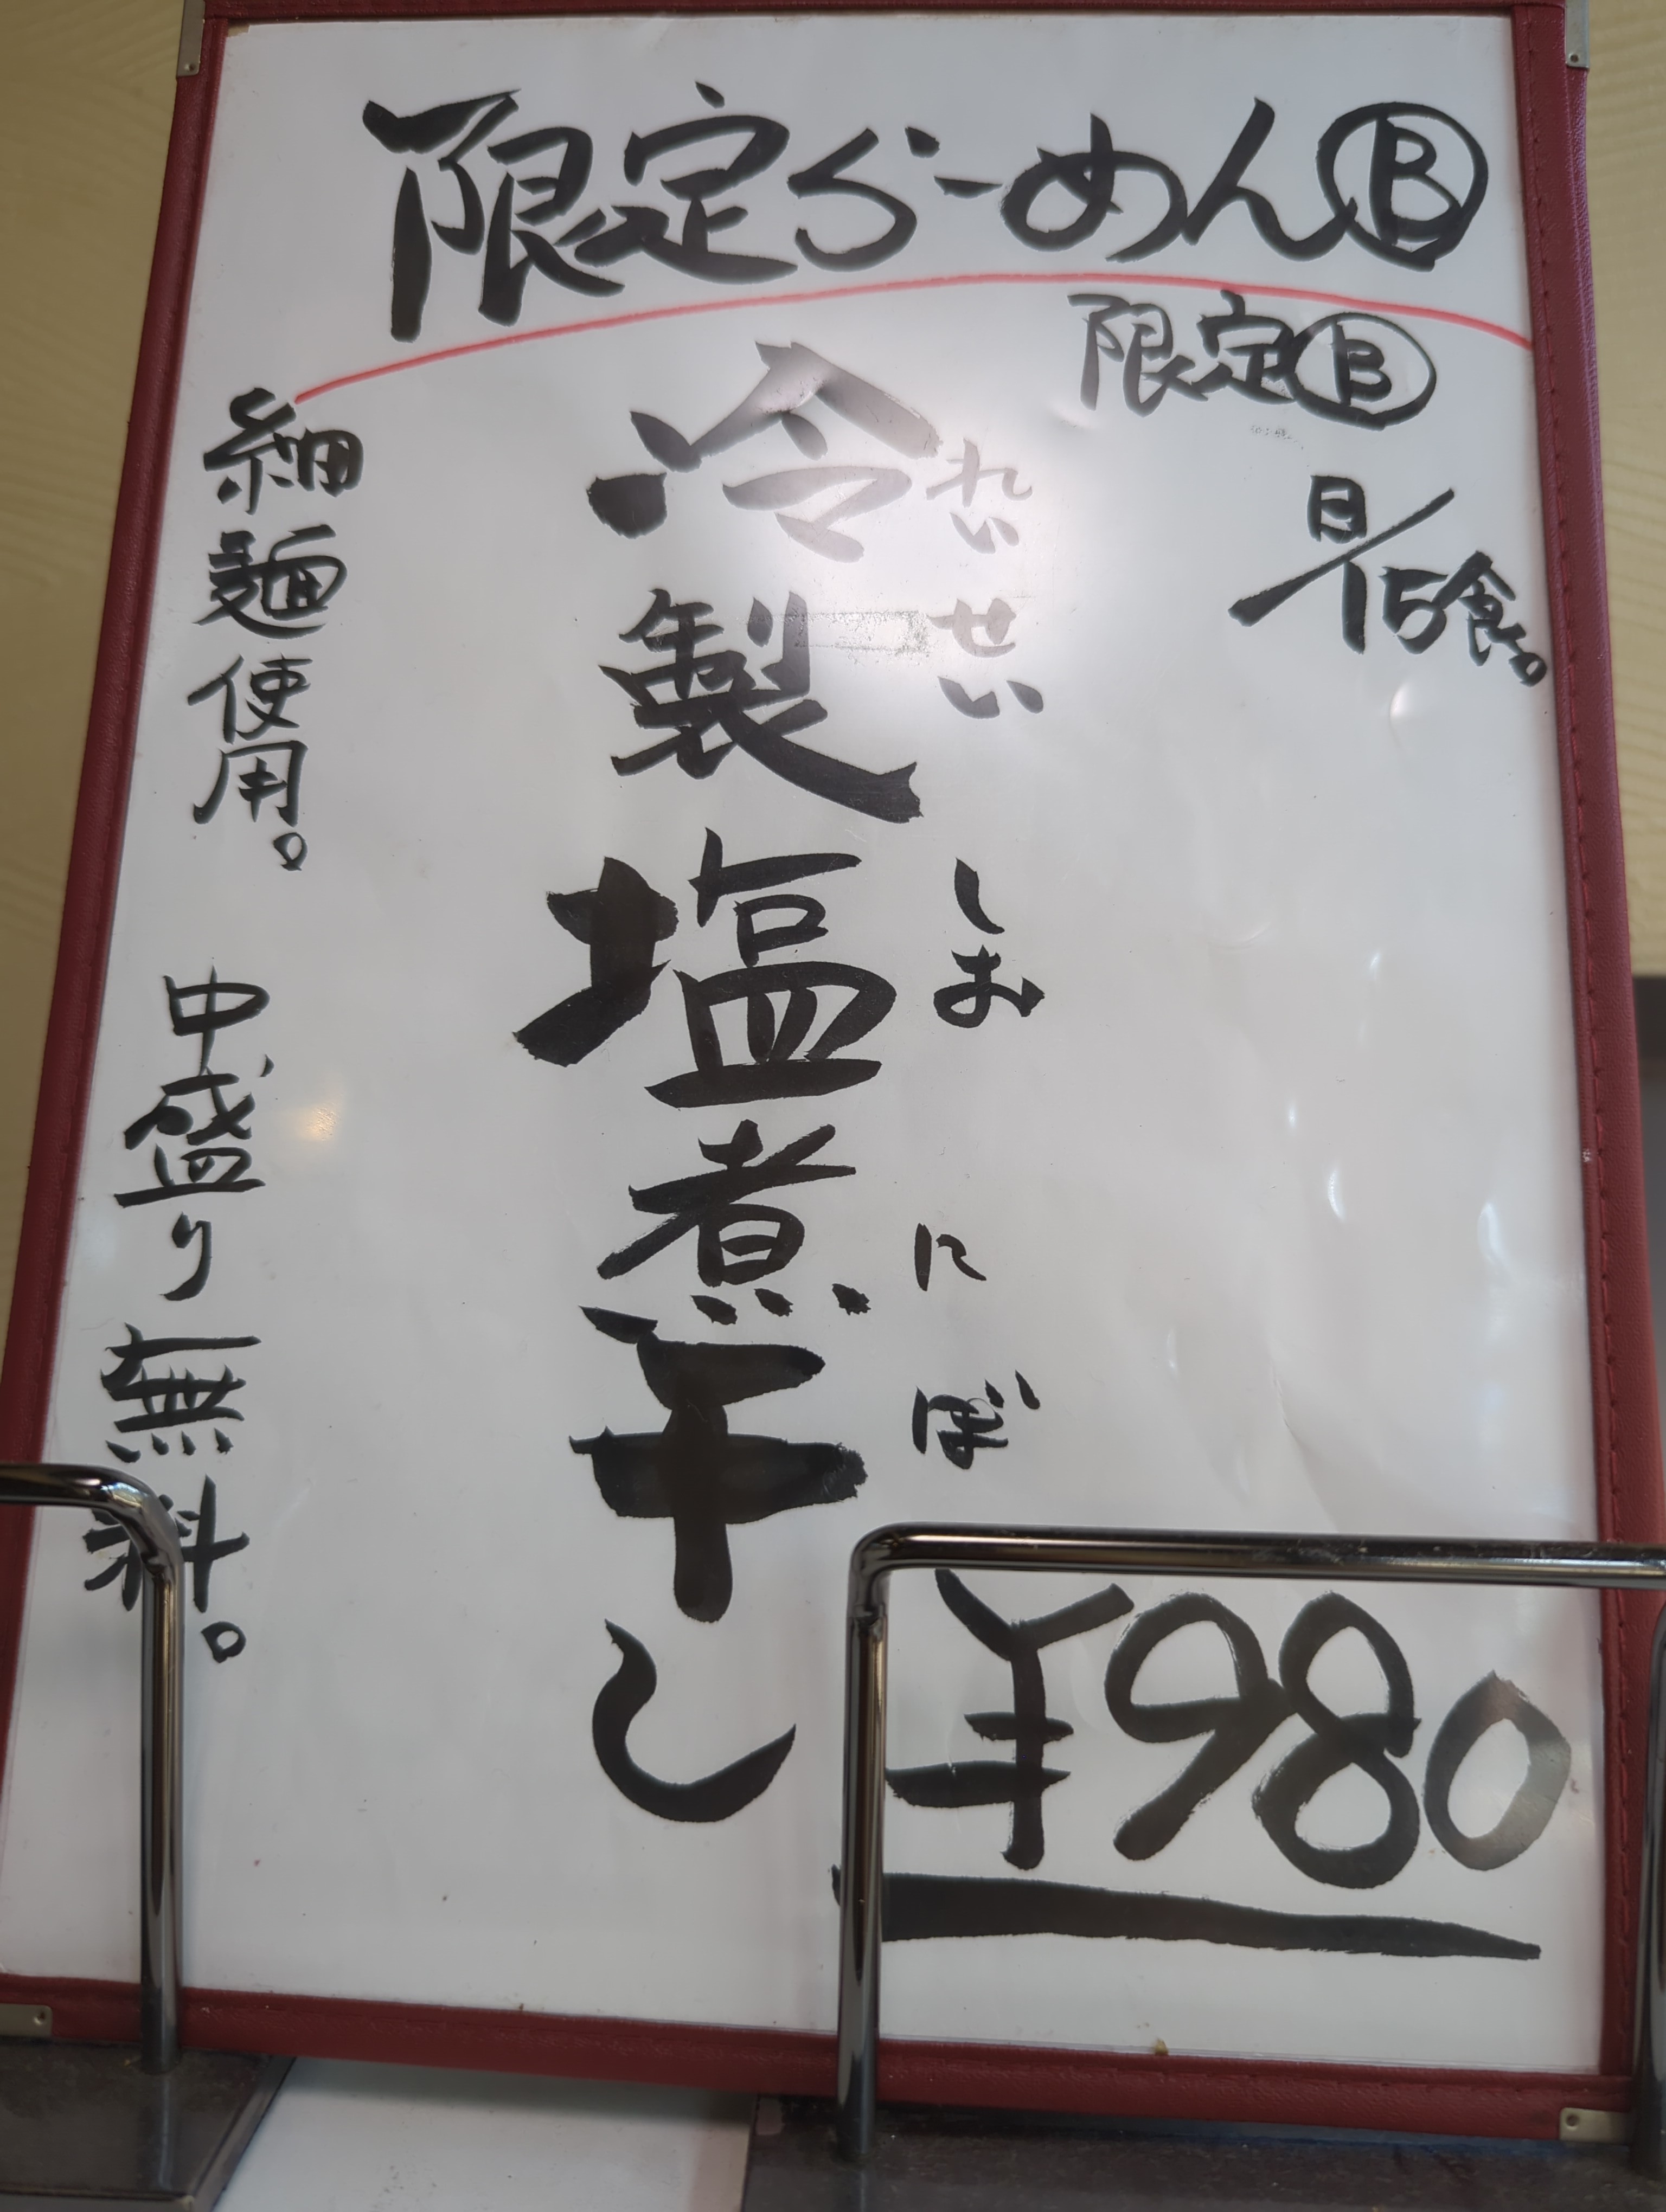 限定らーめんⒷ
限定Ⓑ
日/15食。
れいせい しお にぼ
冷製塩煮干し
¥980
細麺使用。 中盛り無料。